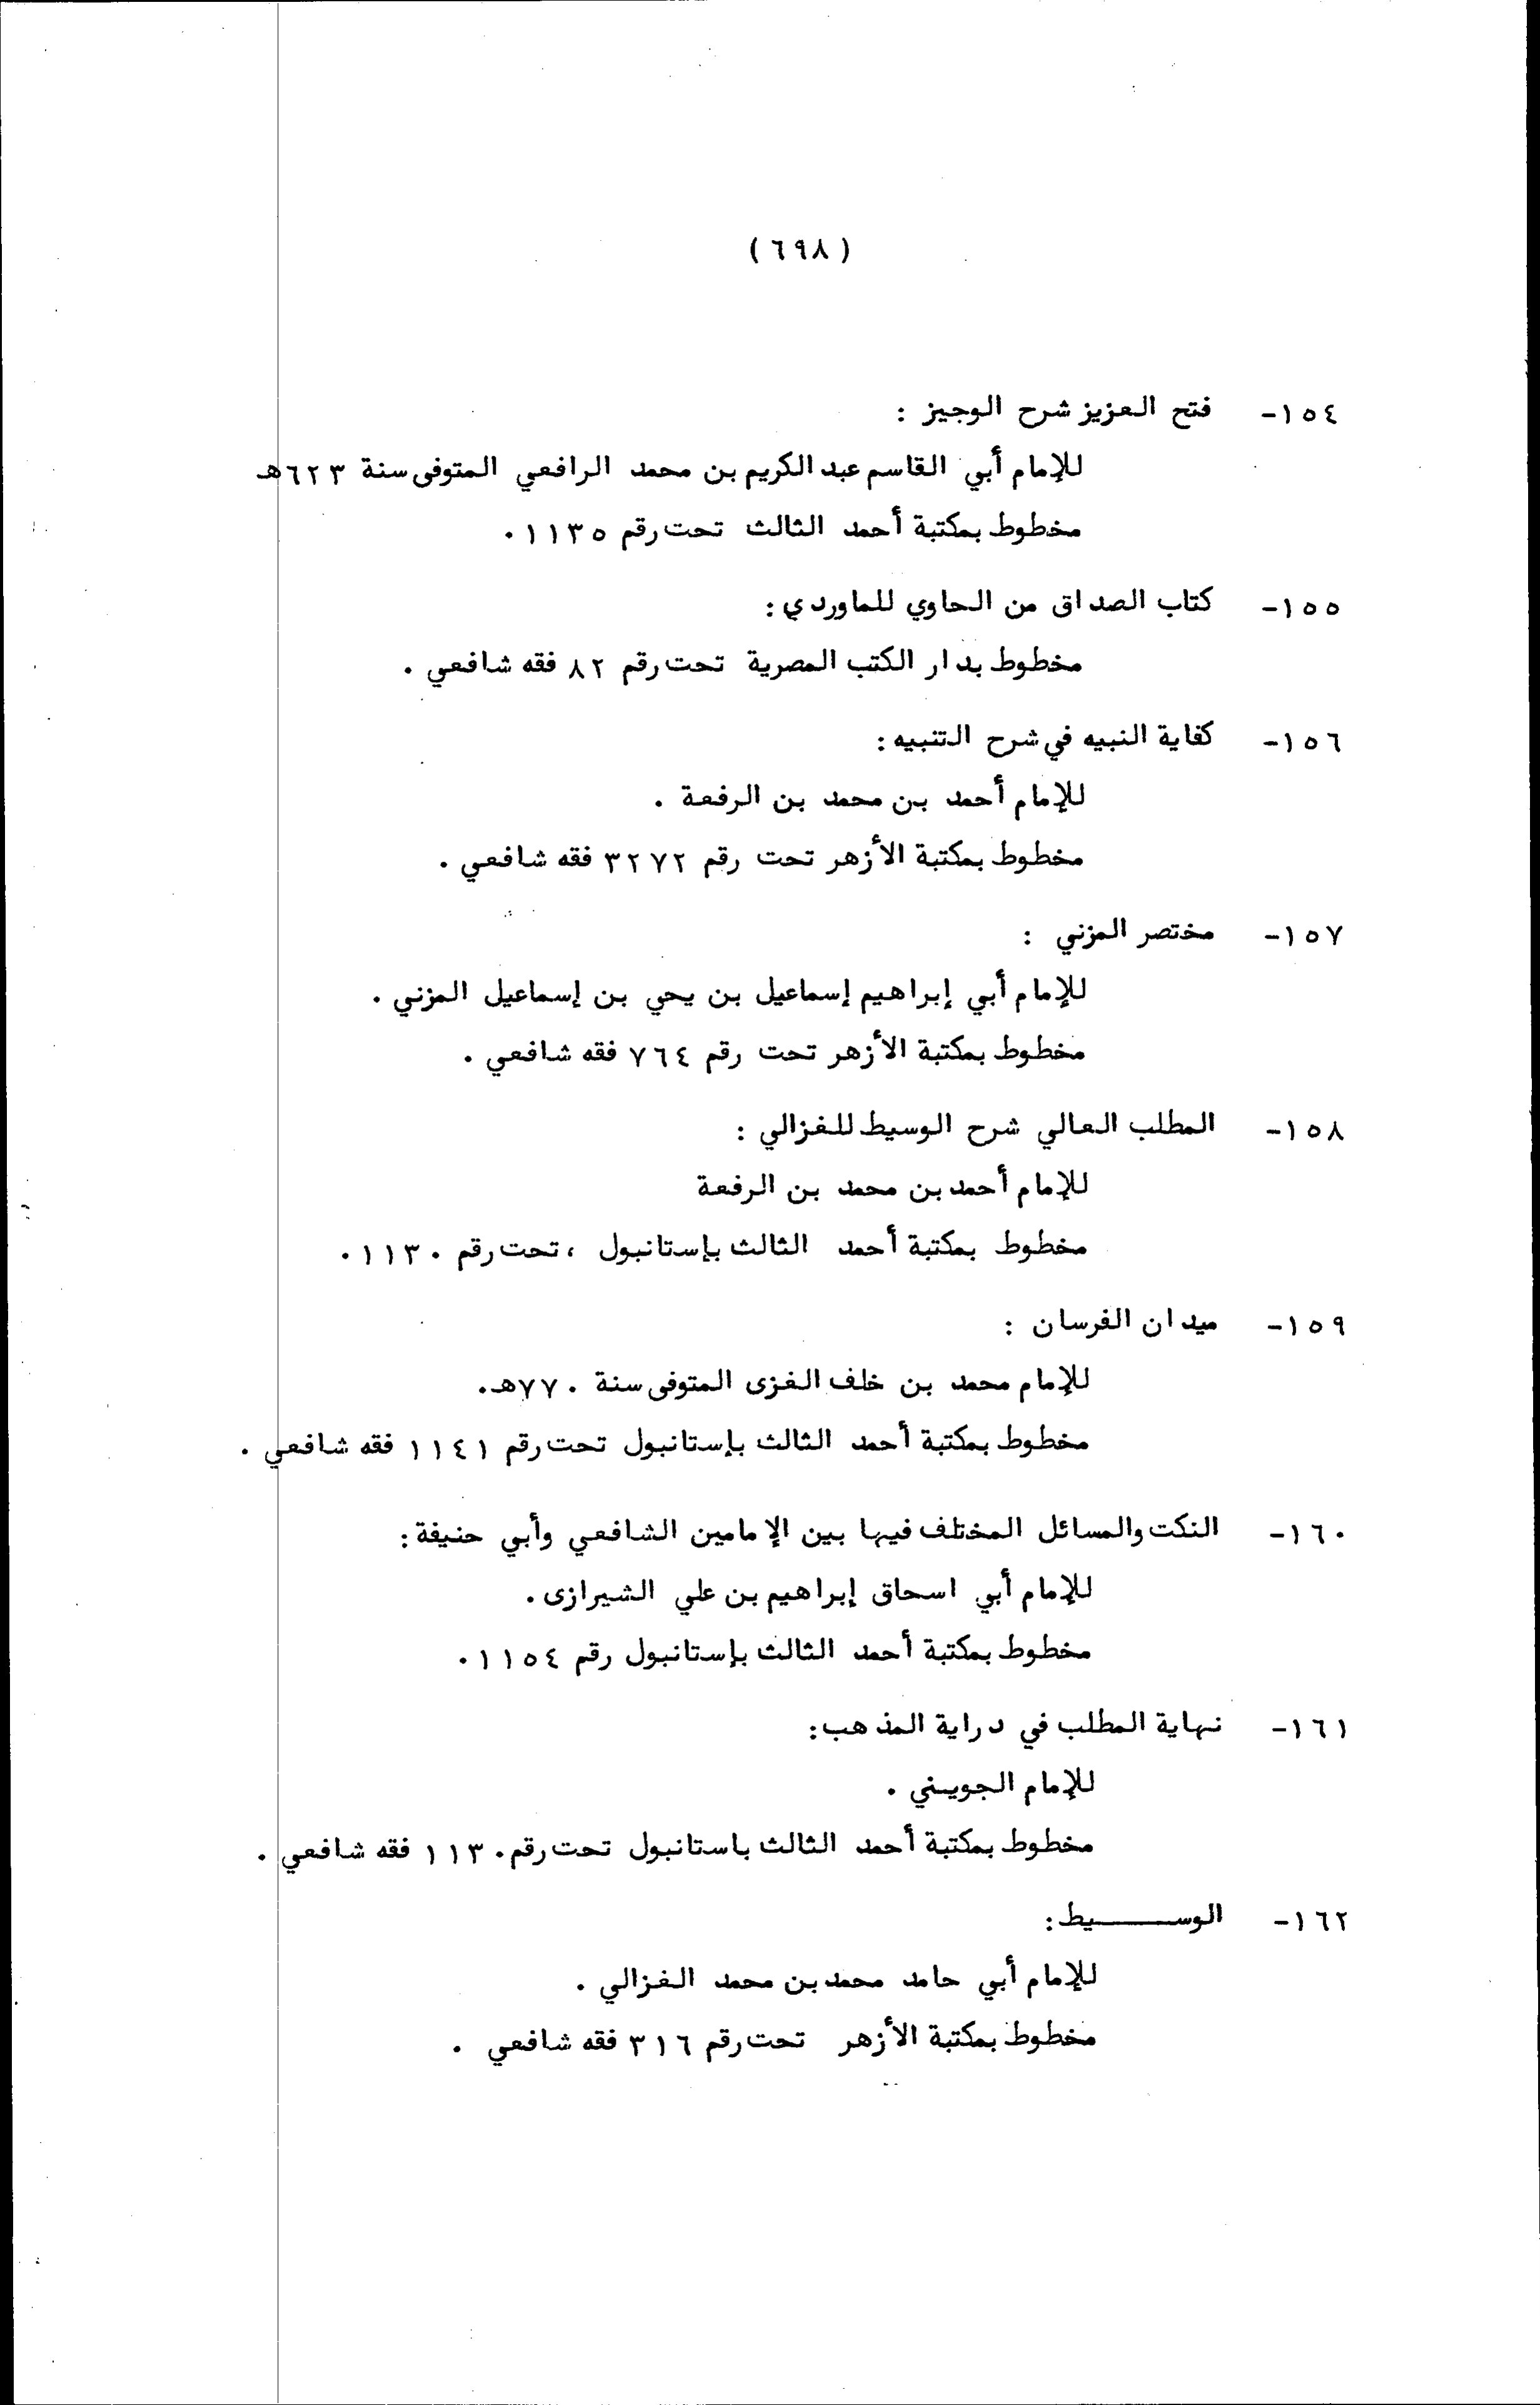 ( ٦٩٨ )
١٥٤- فتح العزيز شرح الوجيز :
للإمام أبي القاسم عبد الكريم بن محمد الرافعي المتوفى سنة ٦٢٣هـ
مخطوط بمكتبة أحمد الثالث تحت رقم ١١٣٥ .
١٥٥- كتاب الصداق من الحاوي للماوردي :
مخطوط بدار الكتب المصرية تحت رقم ٨٢ فقه شافعي .
١٥٦- كفاية النبيه في شرح التنبيه :
للإمام أحمد بن محمد بن الرفعة .
مخطوط بمكتبة الأزهر تحت رقم ٣٢٧٢ فقه شافعي .
١٥٧- مختصر المزني :
للإمام أبي إبراهيم إسماعيل بن يحي بن إسماعيل المزني .
مخطوط بمكتبة الأزهر تحت رقم ٧٦٤ فقه شافعي .
١٥٨- المطلب العالي شرح الوسيط للغزالي :
للإمام أحمد بن محمد بن الرفعة
مخطوط بمكتبة أحمد الثالث بإستانبول ، تحت رقم ١١٣٠ .
١٥٩- ميدان الفرسان :
للإمام محمد بن خلف الغزى المتوفى سنة ٧٧٠هـ .
مخطوط بمكتبة أحمد الثالث بإستانبول تحت رقم ١١٤١ فقه شافعي .
١٦٠- النكت والمسائل المختلف فيها بين الإمامين الشافعي وأبي حنيفة :
للإمام أبي اسحاق إبراهيم بن علي الشيرازى .
مخطوط بمكتبة أحمد الثالث بإستانبول رقم ١١٥٤ .
١٦١- نهاية المطلب في دراية المذهب :
للإمام الجويني .
مخطوط بمكتبة أحمد الثالث باستانبول تحت رقم ١١٣٠ فقه شافعي .
١٦٢- الوســـــيط :
للإمام أبي حامد محمد بن محمد الغزالي .
مخطوط بمكتبة الأزهر تحت رقم ٣١٦ فقه شافعي .